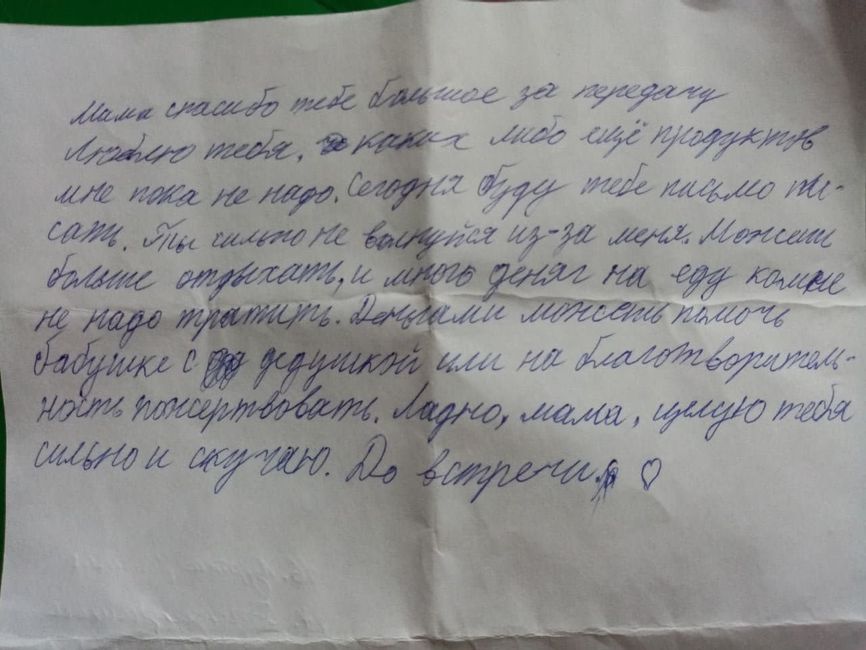 Мама спасибо тебе большое за передачу
Люблю тебя. каких либо ещё продуктов
мне пока не надо. Сегодня буду тебе письмо пи-
сать. Ты сильно не волнуйся из-за меня. Можешь
больше отдыхать, и много деняг на еду ко мне
не надо тратить. Деньгами можешь помочь
бабушке с дедушкой или на благотворитель-
ность пожертвовать. Ладно, мама, целую тебя
сильно и скучаю. До встречи